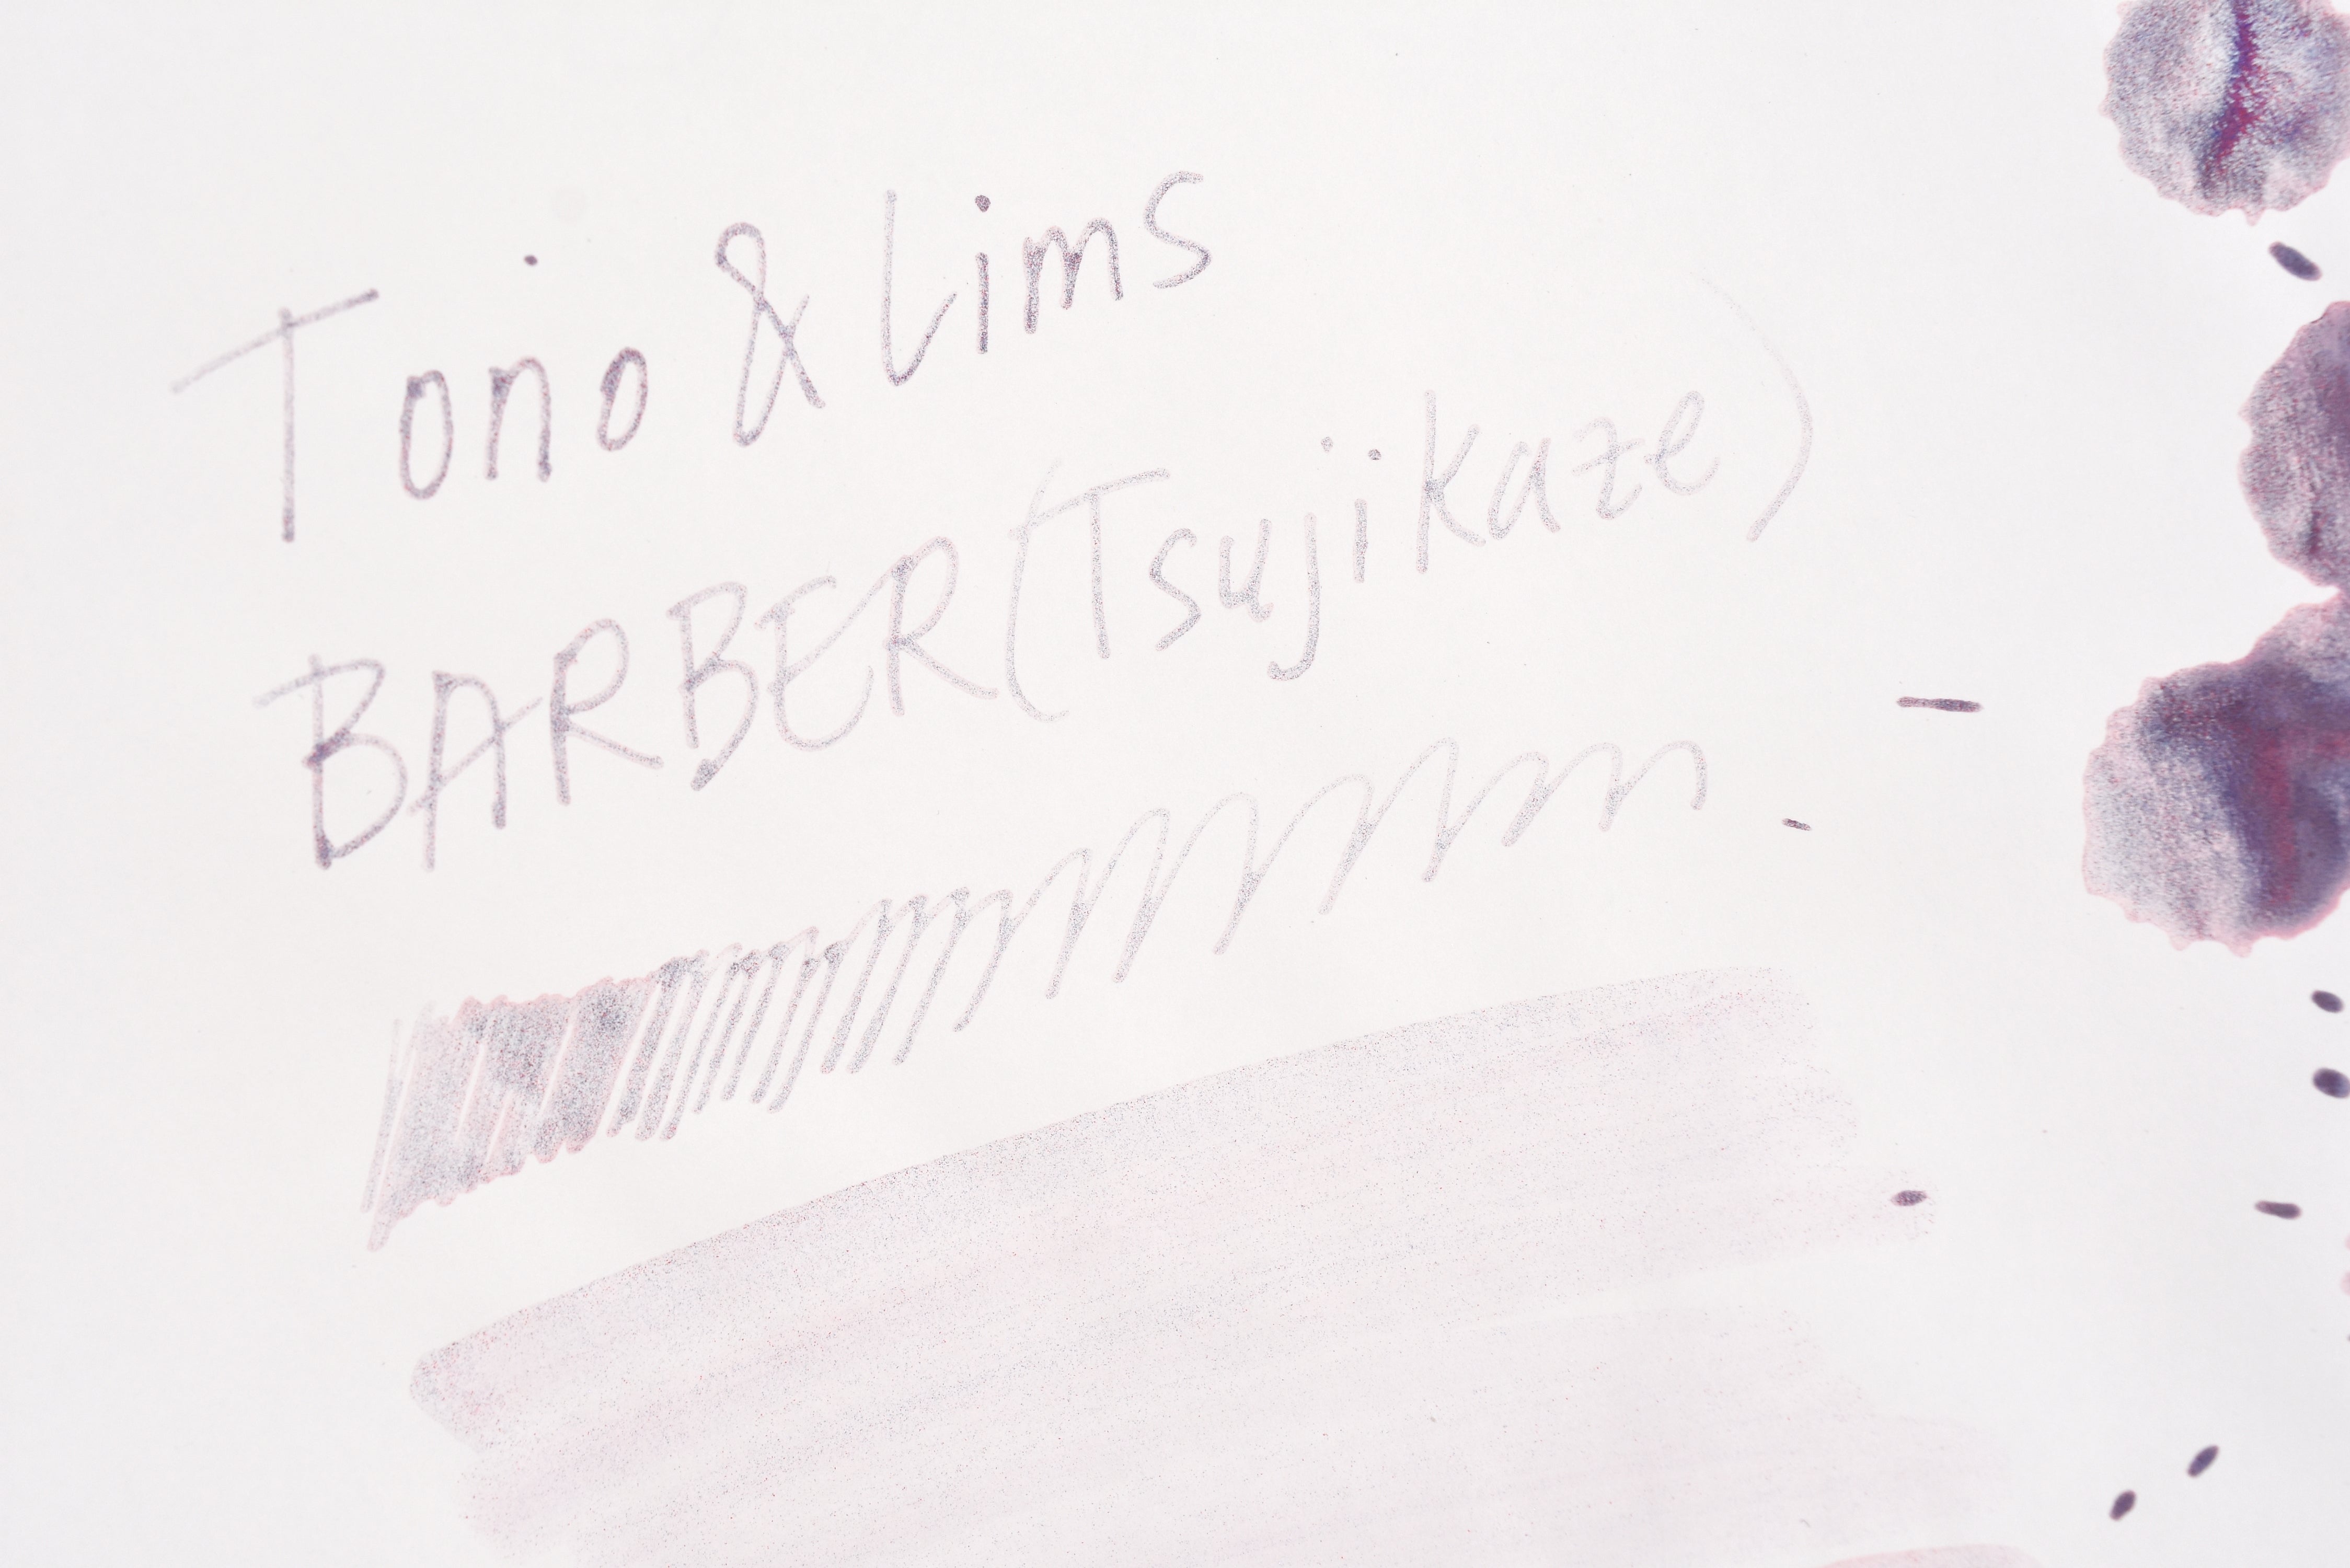 Tono & Lims
BARBER (Tsujikaze)